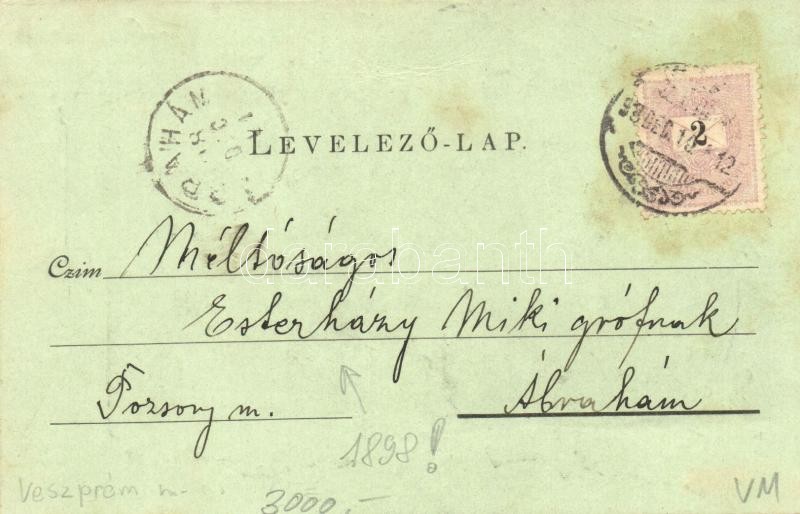 LEVELEZŐ-LAP.
ÁBRAHÁM
98 DEC. 10
2
Czim Méltóságos
Esterházy Miki grófnak
Pozsony m. Ábrahám
1898!
Veszprém m.
3000.-
VM
darabanth